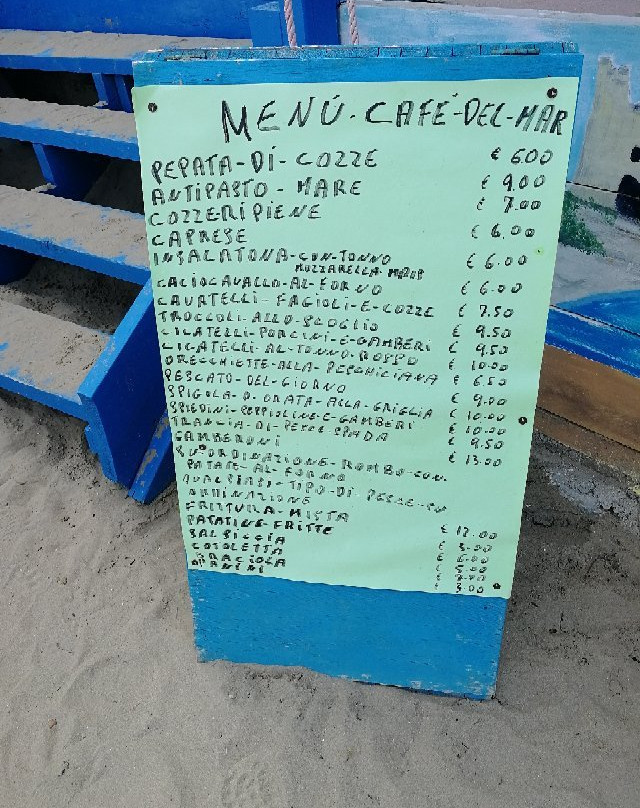 MENÚ-CAFÉ-DEL-MAR
PEPATA-DI-COZZE € 6.00
ANTIPASTO-MARE € 9.00
COZZERIPIENE € 7.00
CAPRESE € 6.00
INSALATONA-CON-TONNO € 6.00
MOZZARELLA-MAIS
CACIOCAVALLO-AL-FORNO € 6.00
CAVATELLI-FAGIOLI-E-COZZE € 7.50
TROCCOLI-ALLO-SCOGLIO € 9.50
CICATELLI-PORCINI-E-GAMBERI € 9.50
CICATELLI-AL-TONNO-ROSSO € 10.00
ORECCHIETTE-ALLA-PESCHICIANA € 6.50
PESCATO-DEL-GIORNO € 9.00
SPIGOLA-O-ORATA-ALLA-GRIGLIA € 10.00
SPIEDINI-SEPPIOLINE-E-GAMBERI € 10.00
TRANCIA-DI-PESCE-SPADA € 9.50
GAMBERONI € 13.00
SU-ORDINAZIONE-ROMBO-CON-
PATATE-AL-FORNO
QUALSIASI-TIPO-DI-PESCE-SU
ORDINAZIONE
FRITTURA-MISTA € 12.00
PATATINE-FRITTE € 3.00
SALSICCIA € 6.00
COTOLETTA € 5.00
BRACIOLA
PANINI € 3.00